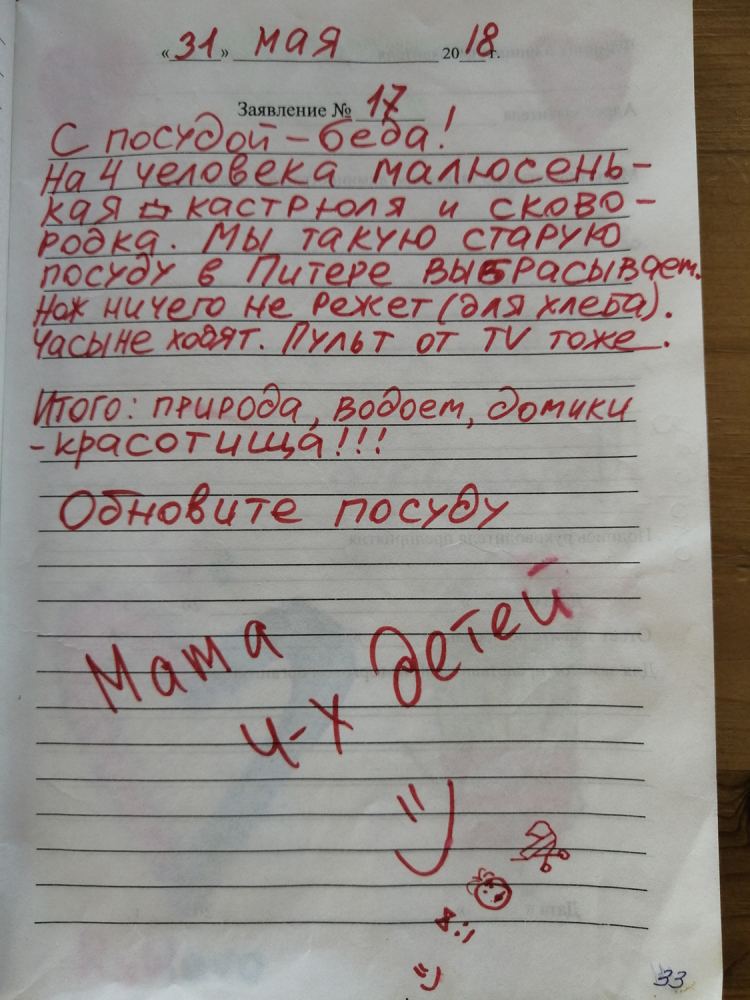 «31» мая 2018 г.
Заявление № 17
С посудой - беда!
На 4 человека малюсень-
кая кастрюля и сково-
родка. Мы такую старую
посуду в Питере выбрасываем.
Нож ничего не режет (для хлеба).
Часы не ходят. Пульт от TV тоже.
Итого: природа, водоем, домики
- красотища!!!
Обновите посуду
Мама
4-х детей
33